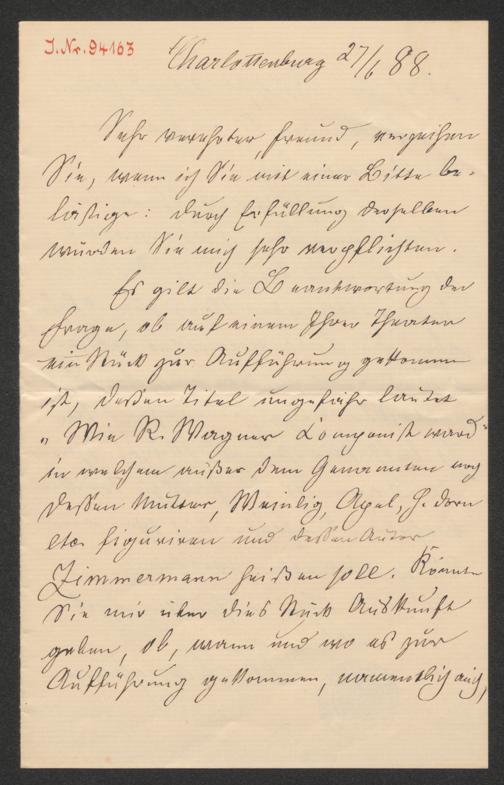 J.Nr. 94163
Charlottenburg 27/6 88.
Sehr verehrter Freund, verzeihen
Sie, wenn ich Sie mit einer Bitte be-
lästige: durch Erfüllung derselben
würden Sie mich sehr verpflichten.
Es gilt die Beantwortung der
Frage, ob auf einem Ihrer Theater
ein Stück zur Aufführung gekommen
ist, dessen Titel ungefähr lautet
„Wie R. Wagner Componist ward"
in welchem außer dem Genannten noch
dessen Mutter, Weinlig, Apel, H. Dorn
etc. figuriren und dessen Autor
Zimmermann heißen soll. Könnten
Sie mir über dies Stück Auskunft
geben, ob, wann und wo es zur
Aufführung gekommen, namentlich auch,